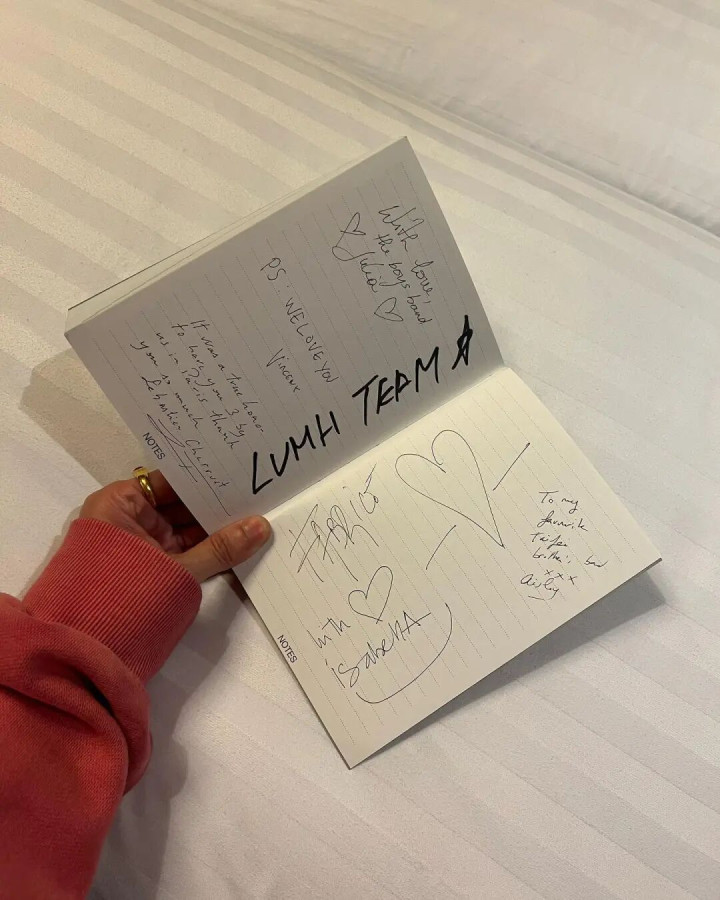 With love,
the boys band
Julia
PS: WE LOVE YOU
Vincent
It was a true honor
to have you 3, by
us in Paris thank
you so much
Sebastien
LVMH TEAM
NOTES
FABRICE
with
isabellA
To my
favourite
brother's band
xxx
NOTES